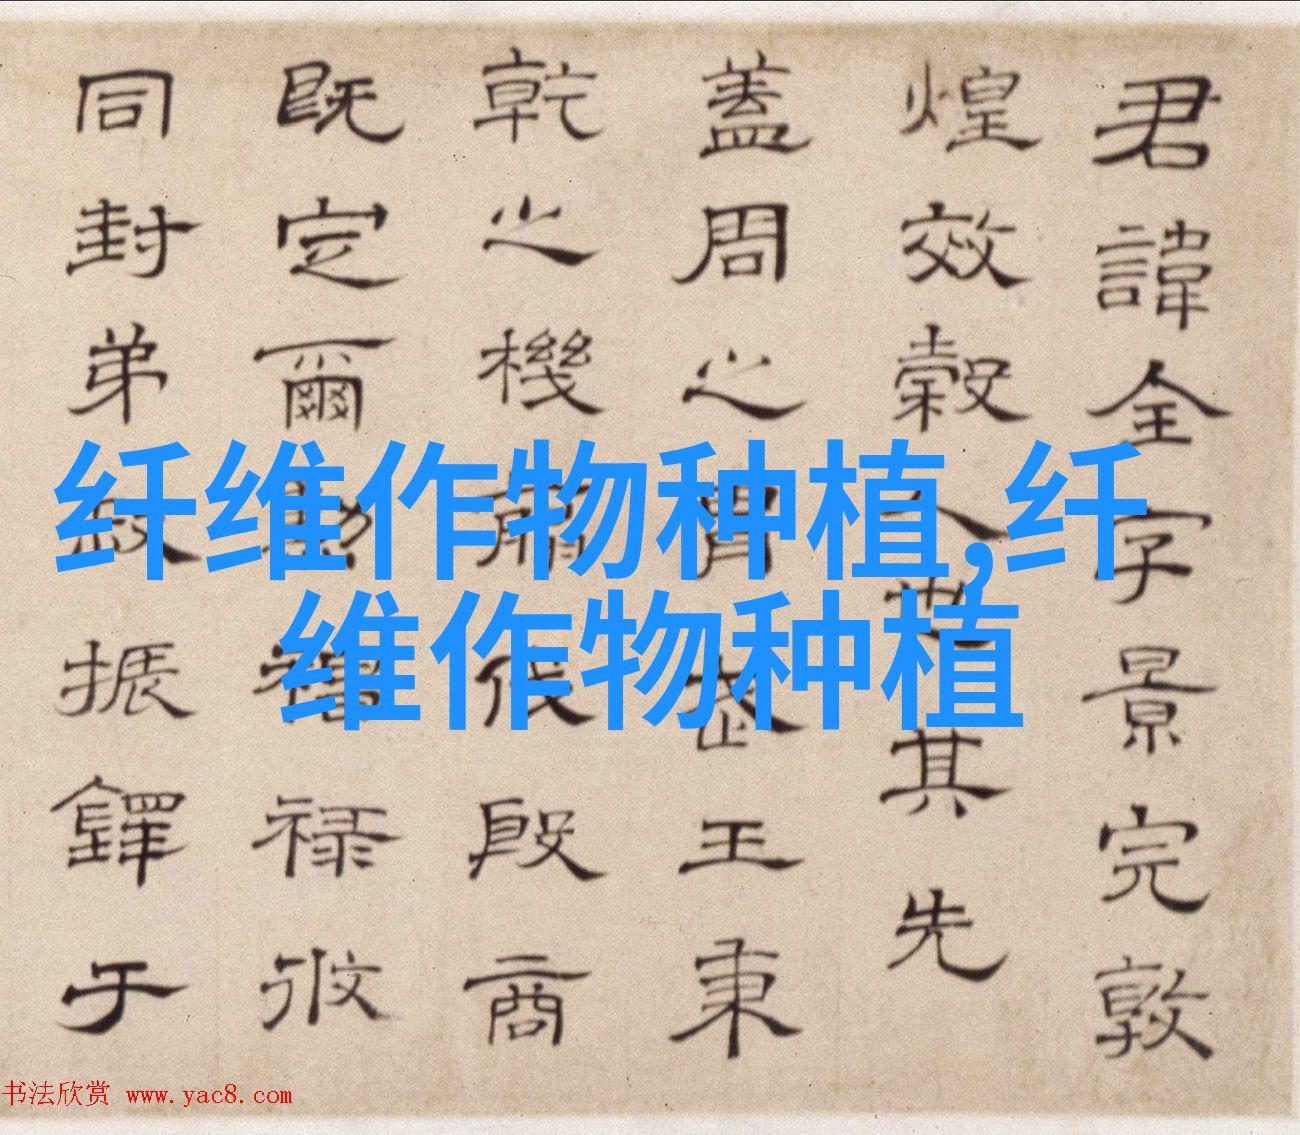 君諱全字景完敦
煌效穀人也其先
蓋周之胄武王秉
乾之機翦伐殷商
既定爾勳福祿攸
同封弟叔振鐸于
纤维作物种植,纤
维作物种植
书法欣赏 www.yac8.com